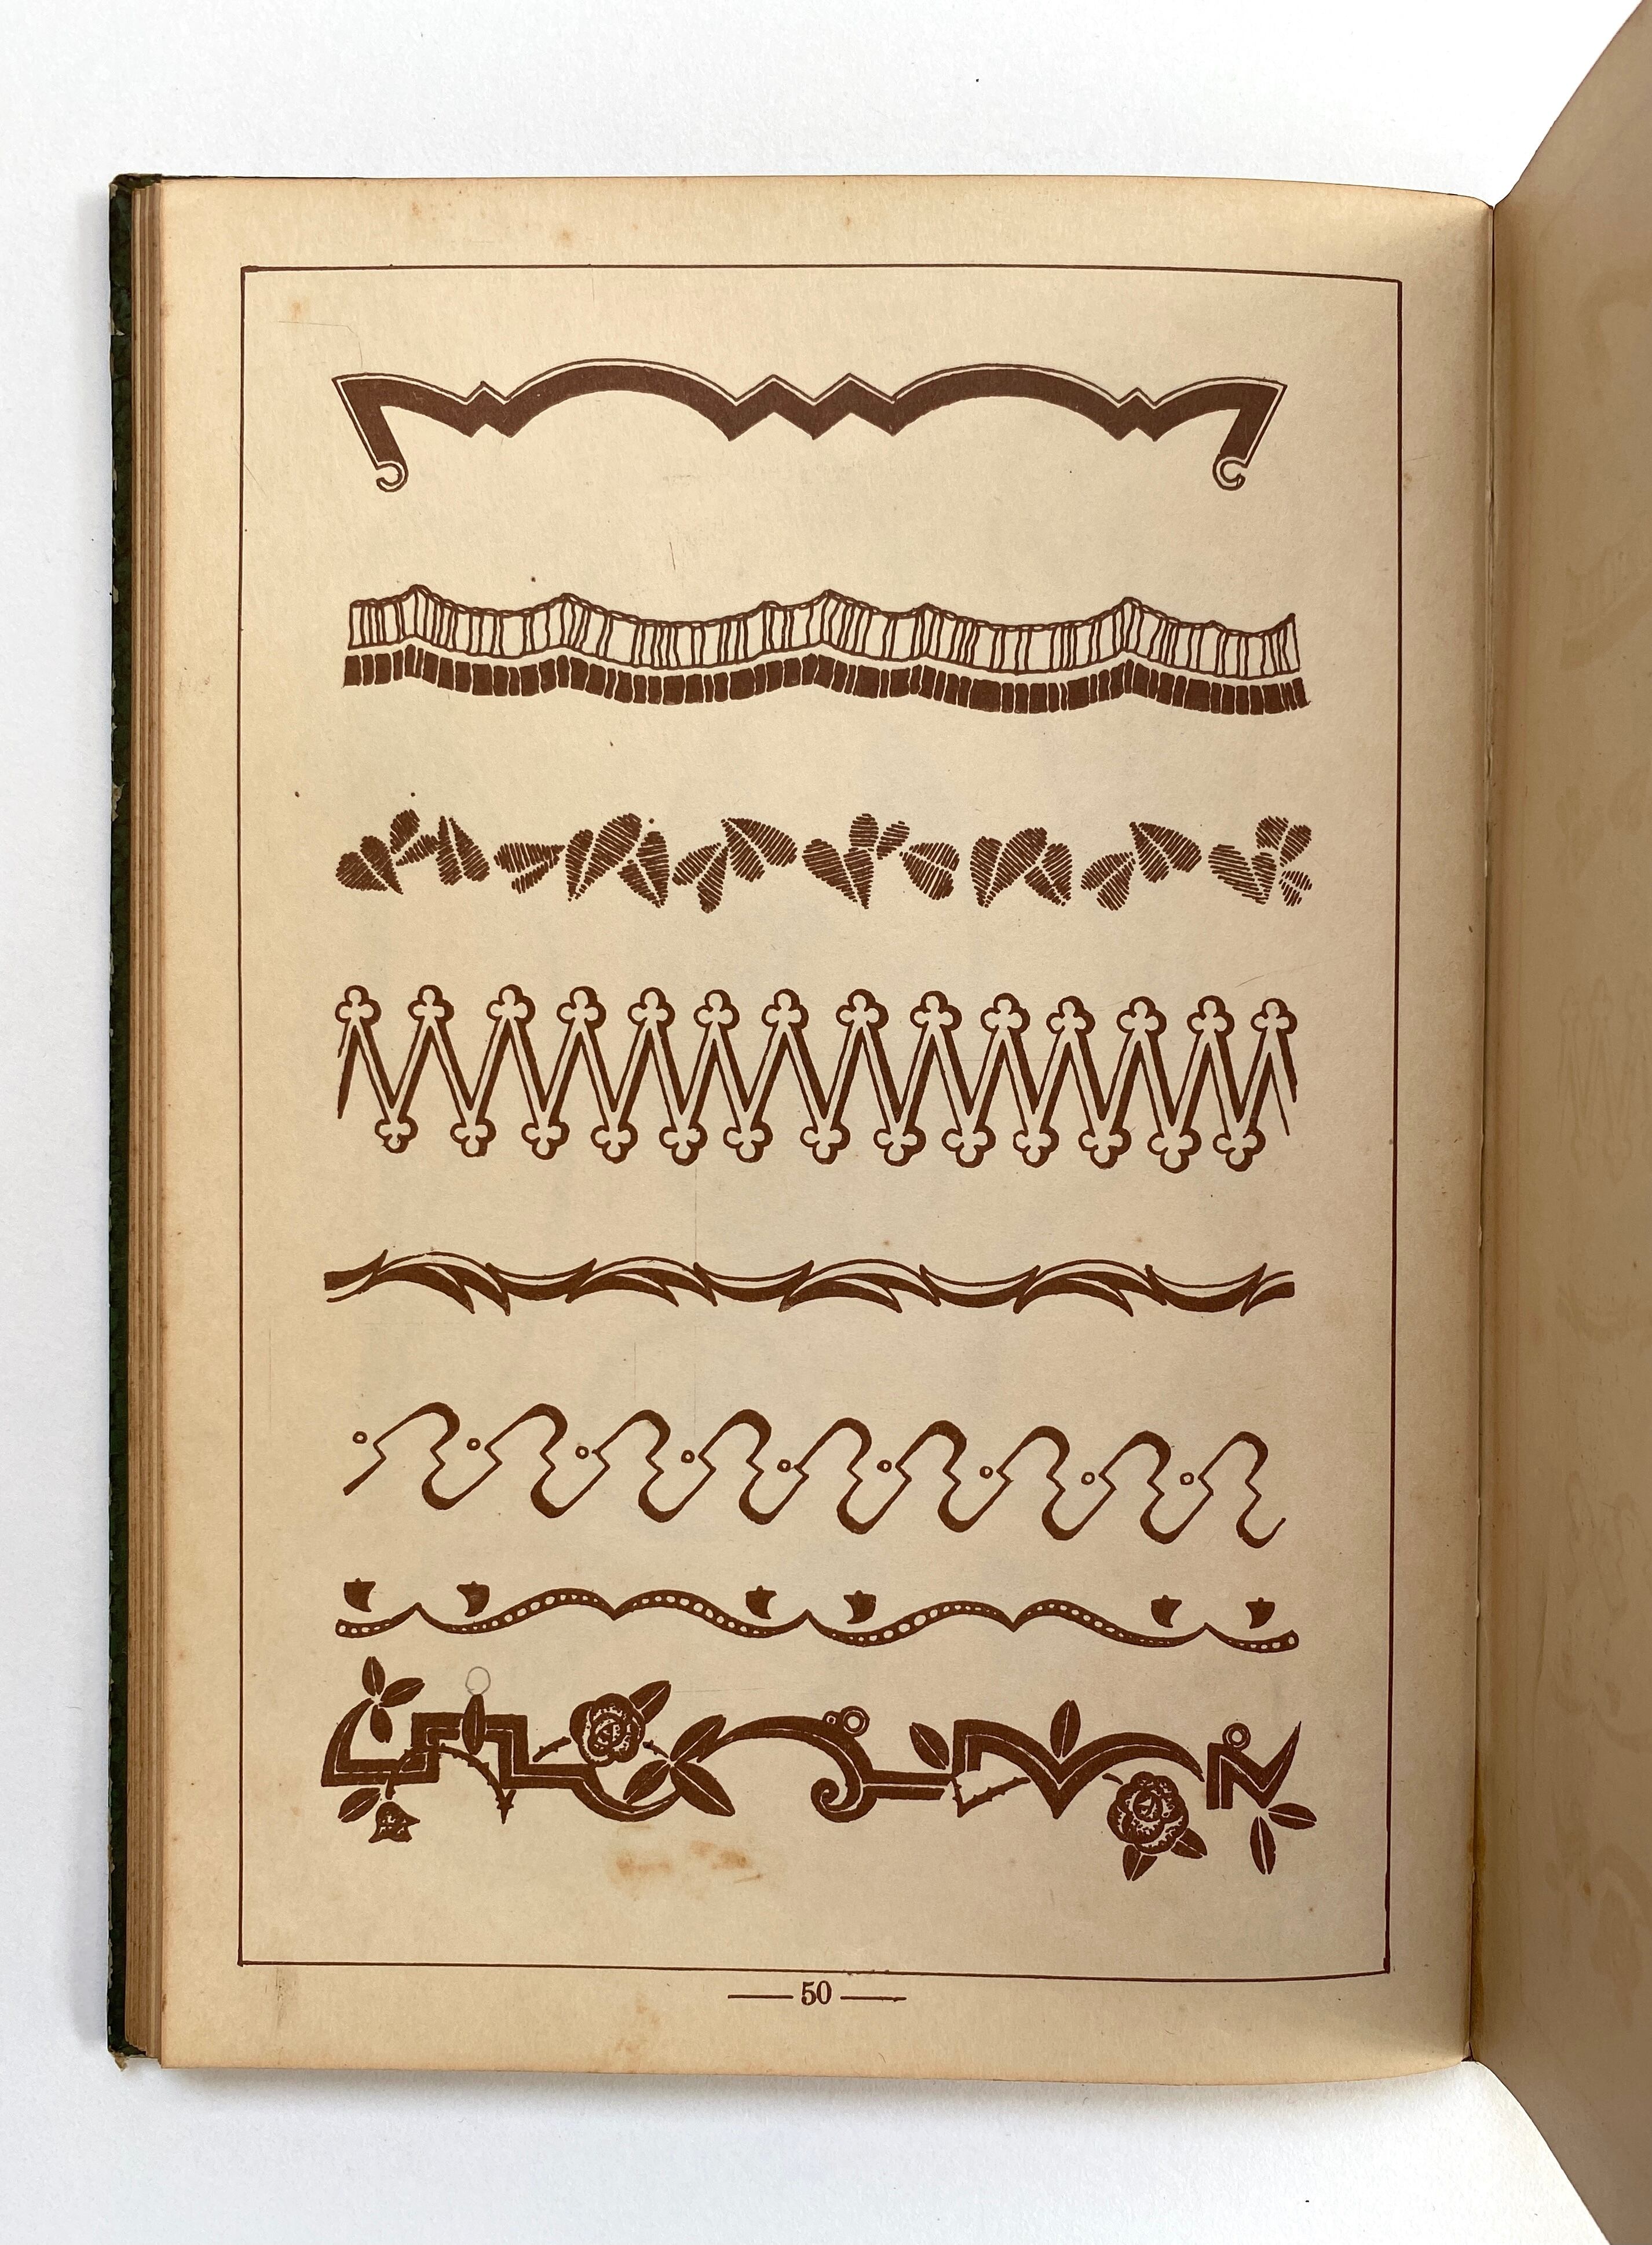 — 50 —